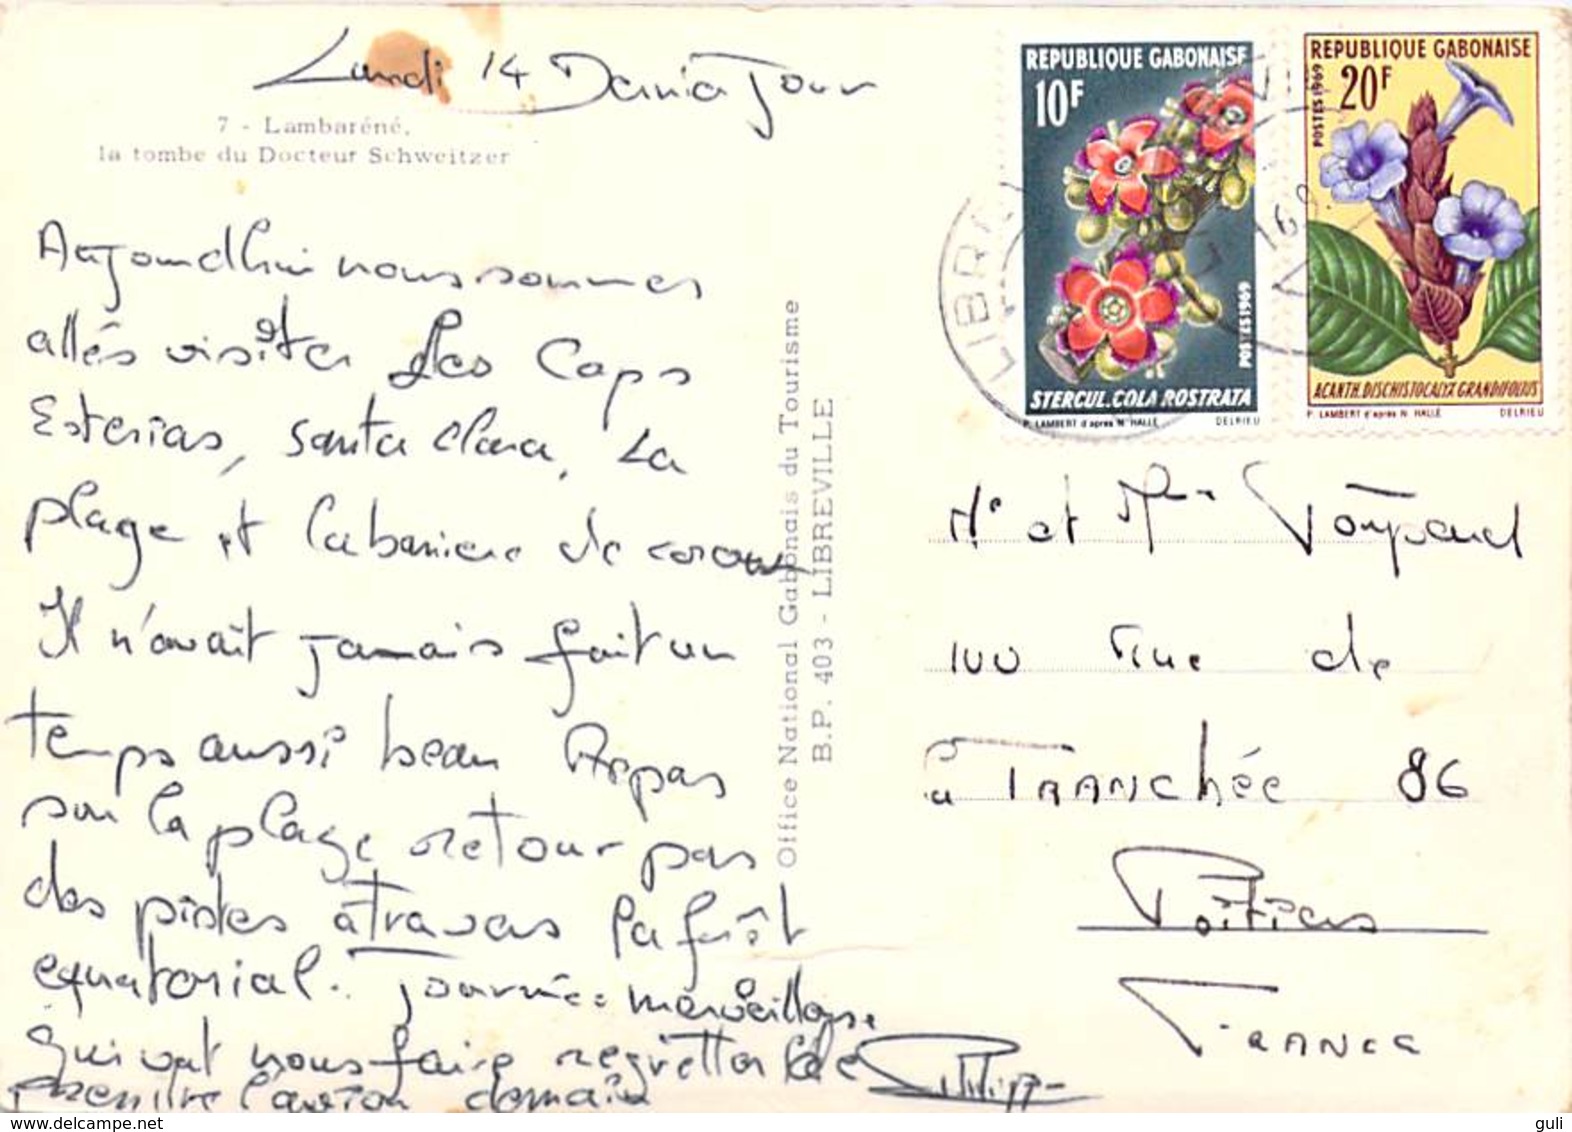 Lundi 14 Dernier Jour
7 - Lambaréné,
la tombe du Docteur Schweitzer
Aujourd'hui nous sommes
allés visiter les Caps
Esterias, Santa Clara, La
plage et la barriere de coraux
Il n'avait jamais fait un
temps aussi beau Repas
sur la plage retour par
des pistes à travers la forêt
equatorial. Journée merveilleuse
qui vat nous faire regretter de
prendre l'avion demain
Philippe
Office National Gabonais du Tourisme
B.P. 403 - LIBREVILLE
REPUBLIQUE GABONAISE
10F
POSTES 1969
STERCUL. COLA ROSTRATA
P. LAMBERT d'après N. HALLÉ DELRIEU
REPUBLIQUE GABONAISE
20F
POSTES 1969
ACANTH. DISCHISTOCALYX GRANDIFOLIUS
P. LAMBERT d'après N. HALLÉ DELRIEU
Mr et Mme
100 rue de
la TRANchée 86
Poitiers
FRANCE
guli